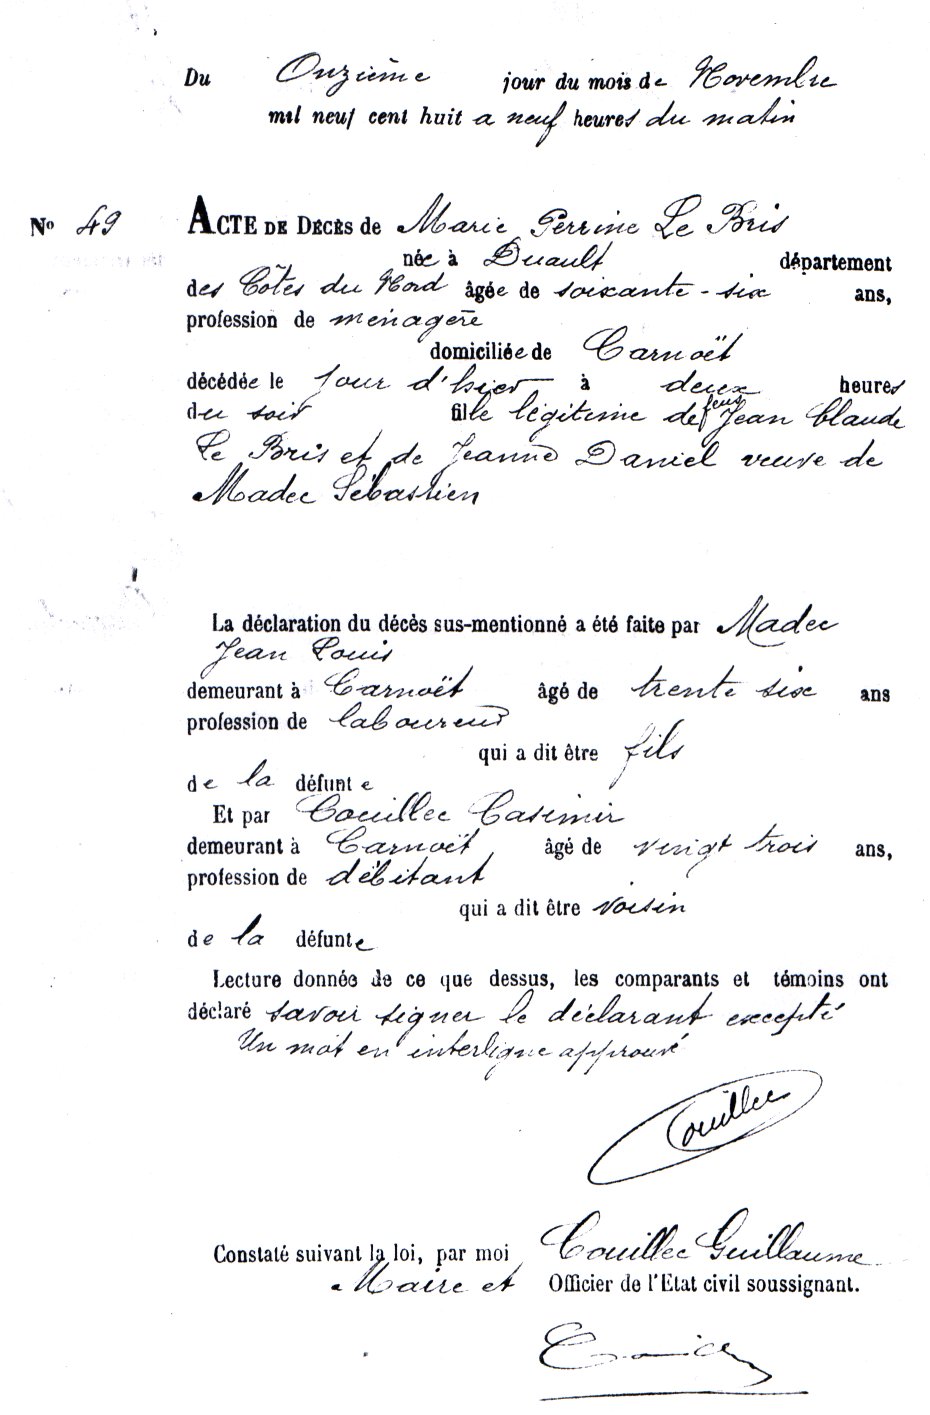 Du Onzième jour du mois de Novembre
mil neuf cent huit a neuf heures du matin
No 49
ACTE DE DÉCÈS de Marie Perrine Le Bris
née à Duault département
des Côtes du Nord âgée de soixante-six ans,
profession de ménagère
domiciliée de Carnoët
décédée le jour d'hier à deux heures
du soir fille légitime de feus Jean Claude
Le Bris et de Jeanne Daniel veuve de
Madec Sébastien
La déclaration du décès sus-mentionné a été faite par Madec
Jean Louis
demeurant à Carnoët âgé de trente six ans
profession de laboureur
qui a dit être fils
de la défunte
Et par Couillec Casimir
demeurant à Carnoët âgé de vingt trois ans,
profession de débitant
qui a dit être voisin
de la défunte
Lecture donnée de ce que dessus, les comparants et témoins ont
déclaré savoir signer le déclarant excepté
Un mot en interligne approuvé
Couillec
Constaté suivant la loi, par moi Couillec Guillaume
Maire et Officier de l'Etat civil soussignant.